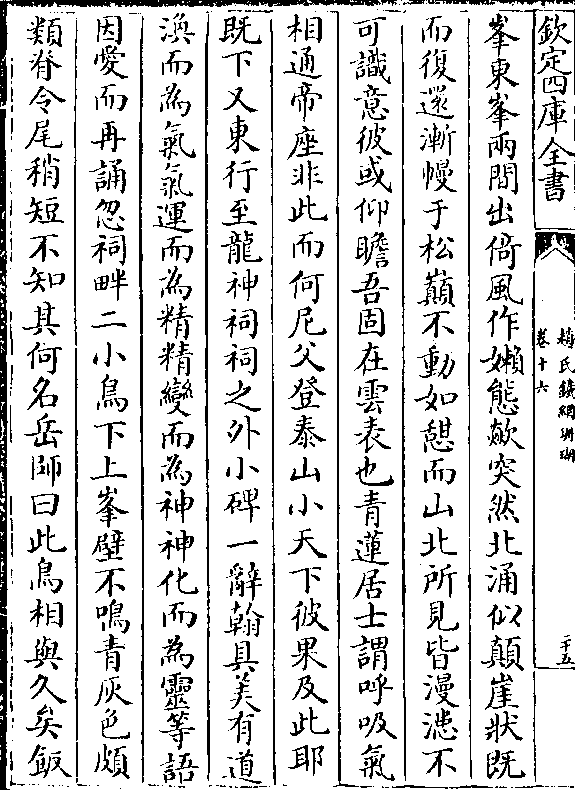 欽定四庫全書
趙氏鐵網珊瑚
卷十六
二十五
峯東峯兩間出倚風作嬾態歘突然北涌似顛崖狀既
而復還漸幔于松巔不動如憩而山北所見皆漫漶不
可識意彼或仰瞻吾固在雲表也青蓮居士謂呼吸氣
相通帝座非此而何尼父登泰山小天下彼果及此耶
既下又東行至龍神祠祠之外小碑一辭翰具美有道
渙而為氣氣運而為精精變而為神神化而為靈等語
因愛而再誦忽祠畔二小鳥下上峯壁不鳴青灰色頗
類脊令尾稍短不知其何名岳師曰此鳥相與久矣飯